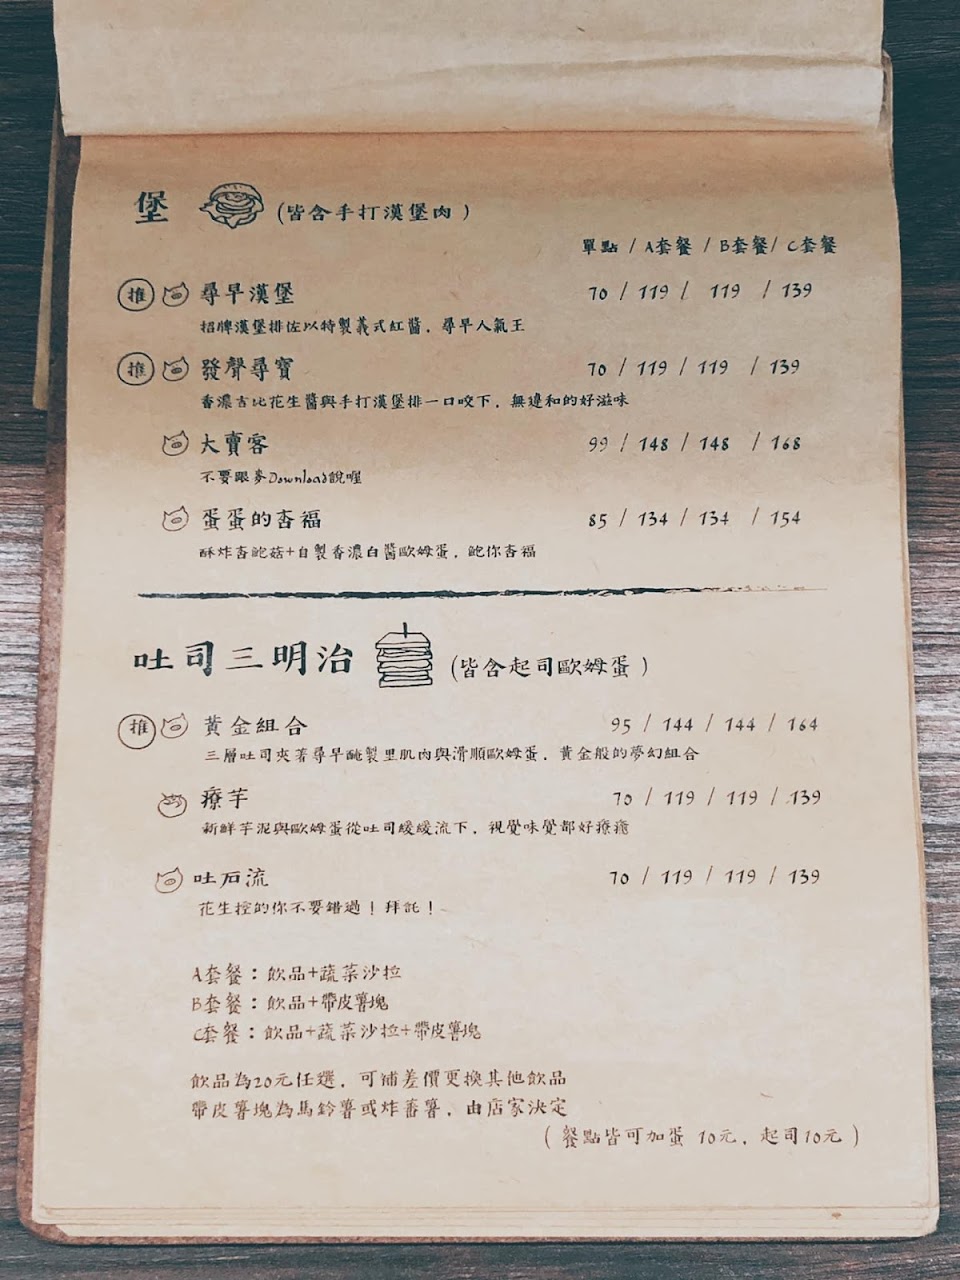 堡 (皆含手打漢堡肉)
單點 / A套餐 / B套餐 / C套餐
推 尋早漢堡 70 / 119 / 119 / 139
招牌漢堡排佐以特製義式紅醬，尋早人氣王
推 發聲尋寶 70 / 119 / 119 / 139
香濃吉比花生醬與手打漢堡排一口咬下，無違和的好滋味
大賣客 99 / 148 / 148 / 168
不要跟麥Download說喔
蛋蛋的杏福 85 / 134 / 134 / 154
酥炸杏鮑菇+自製香濃白醬歐姆蛋，鮑你杏福
吐司三明治 (皆含起司歐姆蛋)
推 黃金組合 95 / 144 / 144 / 164
三層吐司夾著尋早醃製里肌肉與滑順歐姆蛋，黃金般的夢幻組合
療芋 70 / 119 / 119 / 139
新鮮芋泥與歐姆蛋從吐司緩緩流下，視覺味覺都好療癒
吐石流 70 / 119 / 119 / 139
花生控的你不要錯過！拜託！
A套餐：飲品+蔬菜沙拉
B套餐：飲品+帶皮薯塊
C套餐：飲品+蔬菜沙拉+帶皮薯塊
飲品為20元任選，可補差價更換其他飲品
帶皮薯塊為馬鈴薯或炸蕃薯，由店家決定
(餐點皆可加蛋 10元，起司10元)